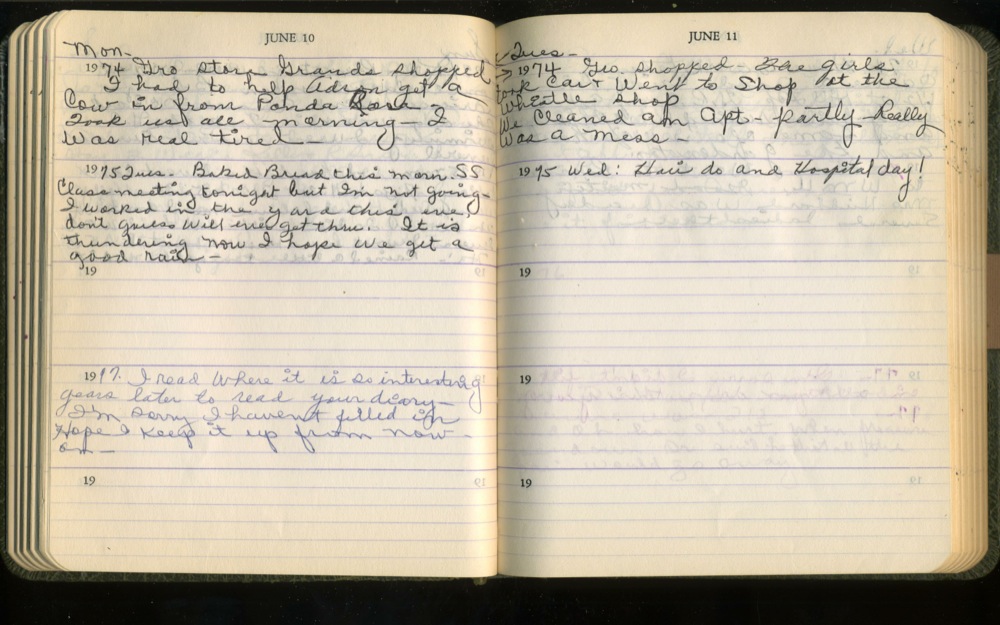 JUNE 10
Mon-
1974 Gro store Grands shopped
I had to help Adron get a
Cow in from Panda
Took us all morning- I
was real tired-
1975 Tues- Baked Bread this morn. SS
Class meeting tonight but I'm not going-
I worked in the yard this eve,
don't guess will ever get thru. It is
thundering now I hope we get a
good rain-
19
1977. I read where it is so interesting
years later to read your diary-
I'm sorry I haven't filled in
Hope I keep it up from now
on-
19
JUNE 11
Tues-
1974 Gro shopped- girls
took car & Went to Shop at the
Whistle shop
We cleaned an Apt- partly- Really
Was a mess-
1975 Wed: Hair do and Hospital day!
19
19
19